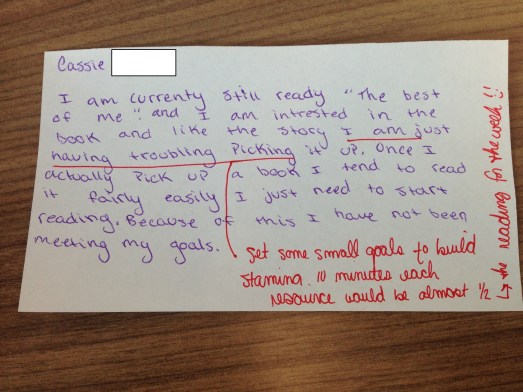 Cassie
I am currenty still ready "The best
of me" and I am intrested in the
book and like the story I am just
having troubling picking it up. Once I
actually pick up a book I tend to read
it fairly easily I just need to start
reading. Because of this I have not been
meeting my goals.
Set some small goals to build
stamina. 10 minutes each
resource would be almost 1/2
↳ the reading for the week!!